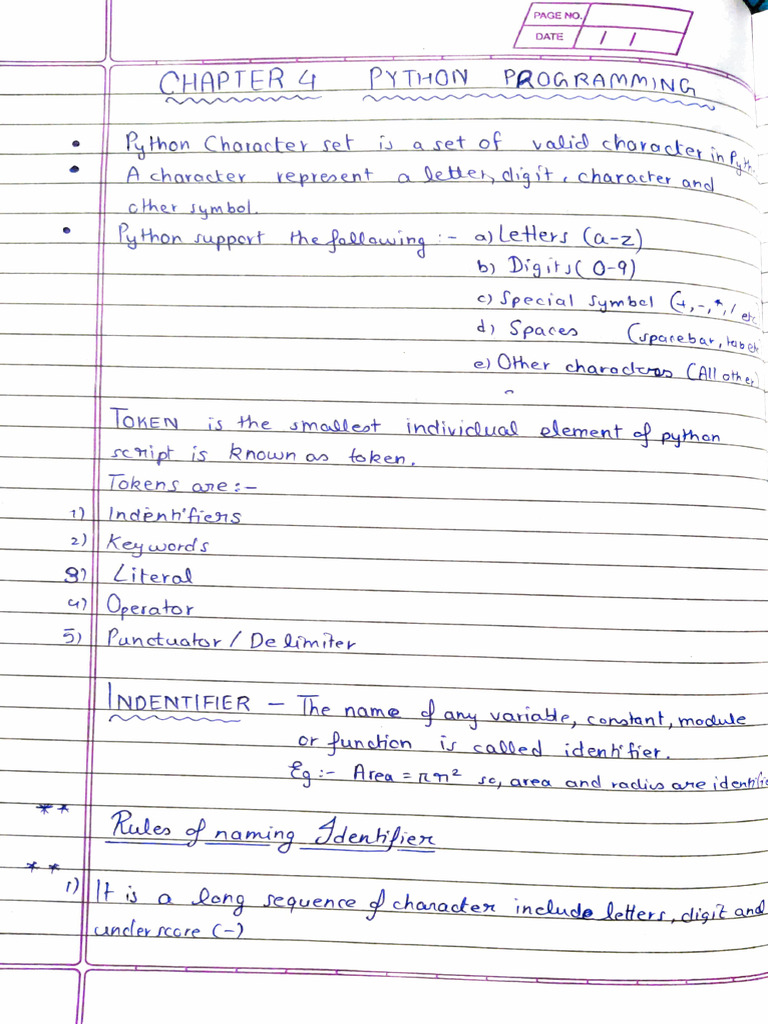 PAGE NO.
DATE / /
CHAPTER 4 PYTHON PROGRAMMING
• Python Character set is a set of valid character in Pyth
• A character represent a letter, digit, character and
other symbol.
• Python support the following :- a) Letters (a-z)
b) Digits (0-9)
c) Special symbol (+,-,*,/ etc
d) Spaces (spacebar, tab etc
e) Other characters (All other)
TOKEN is the smallest individual element of python
script is known as token.
Tokens are :-
1) Indentifiers
2) Keywords
3) Literal
4) Operator
5) Punctuator / Delimiter
INDENTIFIER - The name of any variable, constant, module
or function is called identifier.
Eg :- Area = πr² so, area and radius are identifie
** Rules of naming Identifier
** 1) It is a long sequence of character include letters, digit and
underscore (-)